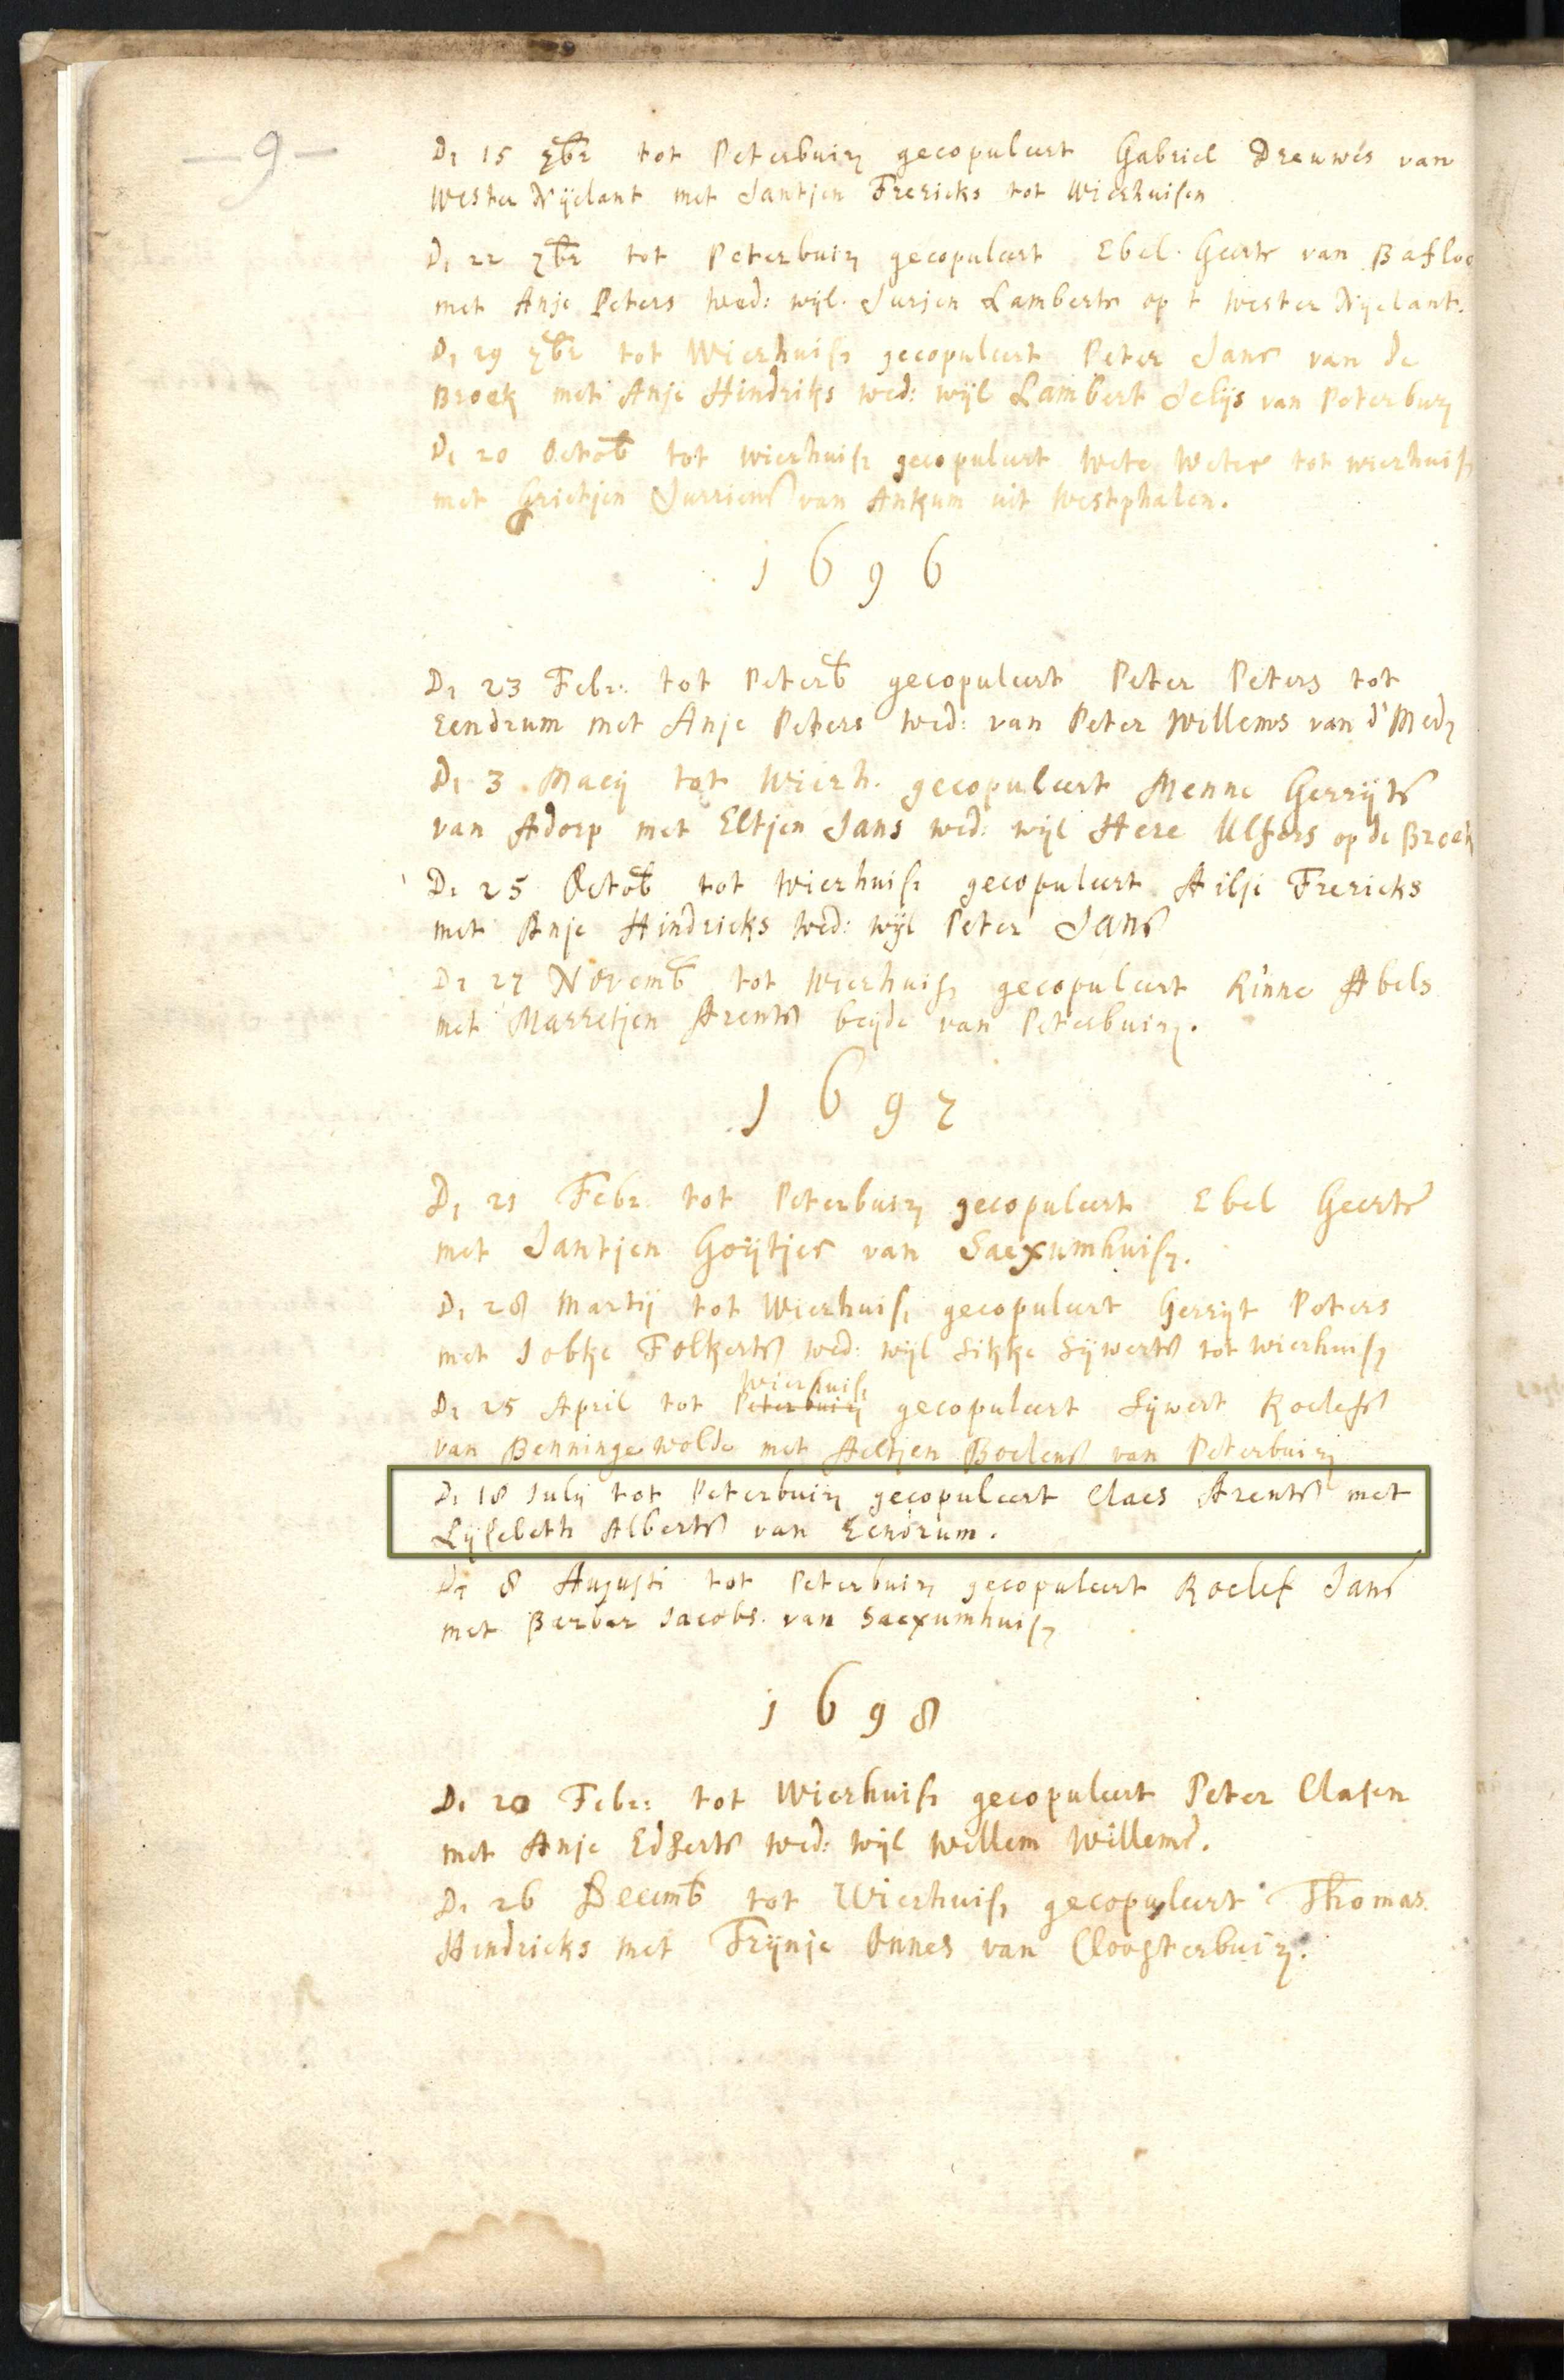 - 9 -
Dn 15 7br tot Peterbuirn gecopuleert Gabriel Dreuwes van
Wester Nijelant met Jantjen Frericks tot Wierhuisen
Dn 22 7br tot Peterbuirn gecopuleert Ebel Geerts van Baflo
met Anje Peters wed: wijl. Jurjen Lamberts op t Wester Nijelant.
Dn 29 7br tot Wierhuisn gecopuleert Peter Jans van de
Broek met Anje Hindriks wed: wijl Lambert Jelijs van Peterburn
Dn 20 Octob tot Wierhuisn gecopuleert Wete Wetes tot wierhuisn
met Grietjen Jurriens van Ankum uit Westphalen.
1696
Dn 23 Febr: tot Peterb gecopuleert Peter Peters tot
Eendrum met Anje Peters wed: van Peter Willems van d'Medn
Dn 3 Maeij tot Wierh. gecopuleert Menne Gerrijts
van Adorp met Eltjen Jans wed: wijl Here Ulfers op de Broek
Dn 25 Octob tot Wierhuisn gecopuleert Hilje Frericks
met Anje Hindricks wed: wijl Peter Jans
Dn 27 Novemb tot Wierhuisn gecopuleert Rinne Abels
met Marretjen Arents beijde van Peterbuirn.
1697
Dn 21 Febr: tot Peterbuirn gecopuleert Ebel Geerts
met Jantjen Goijtjes van Saexumhuisn.
Dn 28 Martij tot Wierhuisn gecopuleert Gerrijt Peters
met Jobke Folkerts wed: wijl Sikke Sijwerts tot Wierhuisn
Wierhuisn
Dn 25 April tot Peterbuirn gecopuleert Sijwert Roelefs
van Benningewolde met Aeltjen Boelens van Peterbuirn
Dn 18 Julij tot Peterbuirn gecopuleert Claes Arents met
Lijsebeth Alberts van Eenrum.
Dn 8 Augusti tot Peterbuirn gecopuleert Roelef Jans
met Barber Jacobs. van Saexumhuisn
1698
Dn 20 Febr: tot Wierhuisn gecopuleert Peter Clasen
met Anje Edserts wed: wijl Willem Willems.
Dn 26 Decemb tot Wierhuisn gecopuleert Thomas
Hindricks met Trijnje Onnes van Cloosterbuirn.